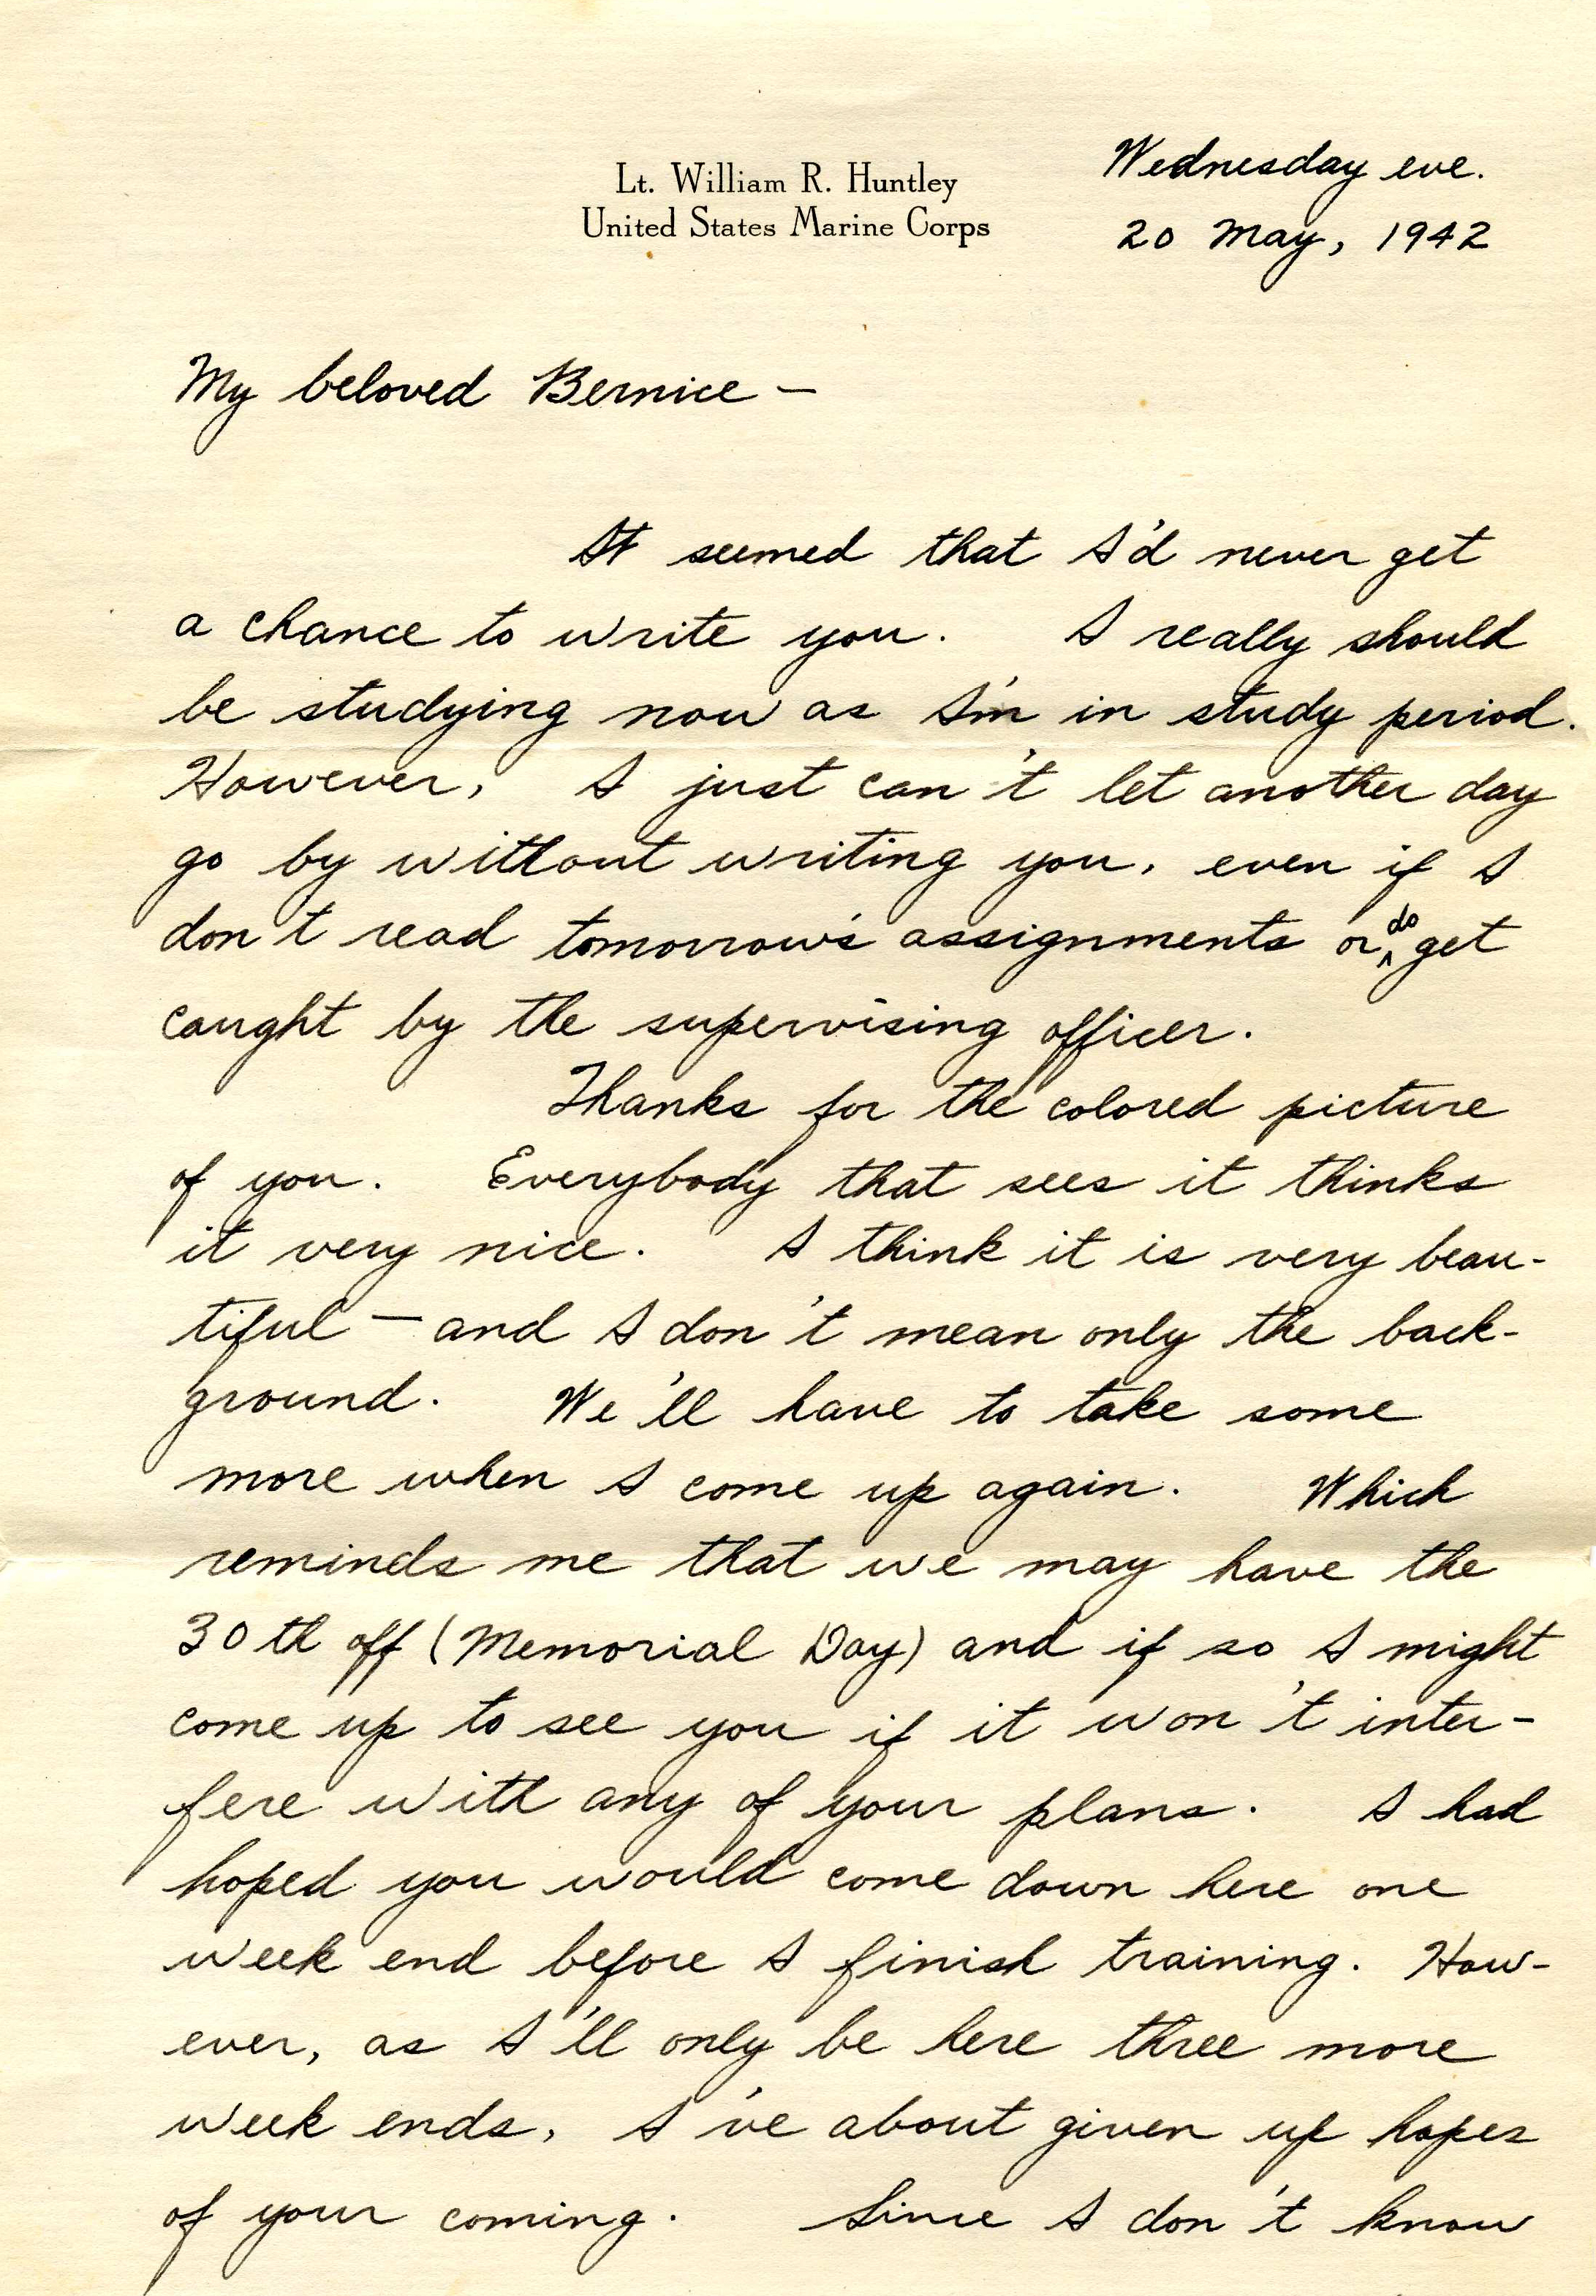 Lt. William R. Huntley
United States Marine Corps
Wednesday eve.
20 May, 1942
My beloved Bernice —
It seemed that I'd never get
a chance to write you. I really should
be studying now as I'm in study period.
However, I just can't let another day
go by without writing you, even if I
don't read tomorrow's assignments or do get
caught by the supervising officer.
Thanks for the colored picture
of you. Everybody that sees it thinks
it very nice. I think it is very beau-
tiful — and I don't mean only the back-
ground. We'll have to take some
more when I come up again. Which
reminds me that we may have the
30th off (Memorial Day) and if so I might
come up to see you if it won't inter-
fere with any of your plans. I had
hoped you would come down here one
week end before I finish training. How-
ever, as I'll only be here three more
week ends, I've about given up hopes
of your coming. Since I don't know